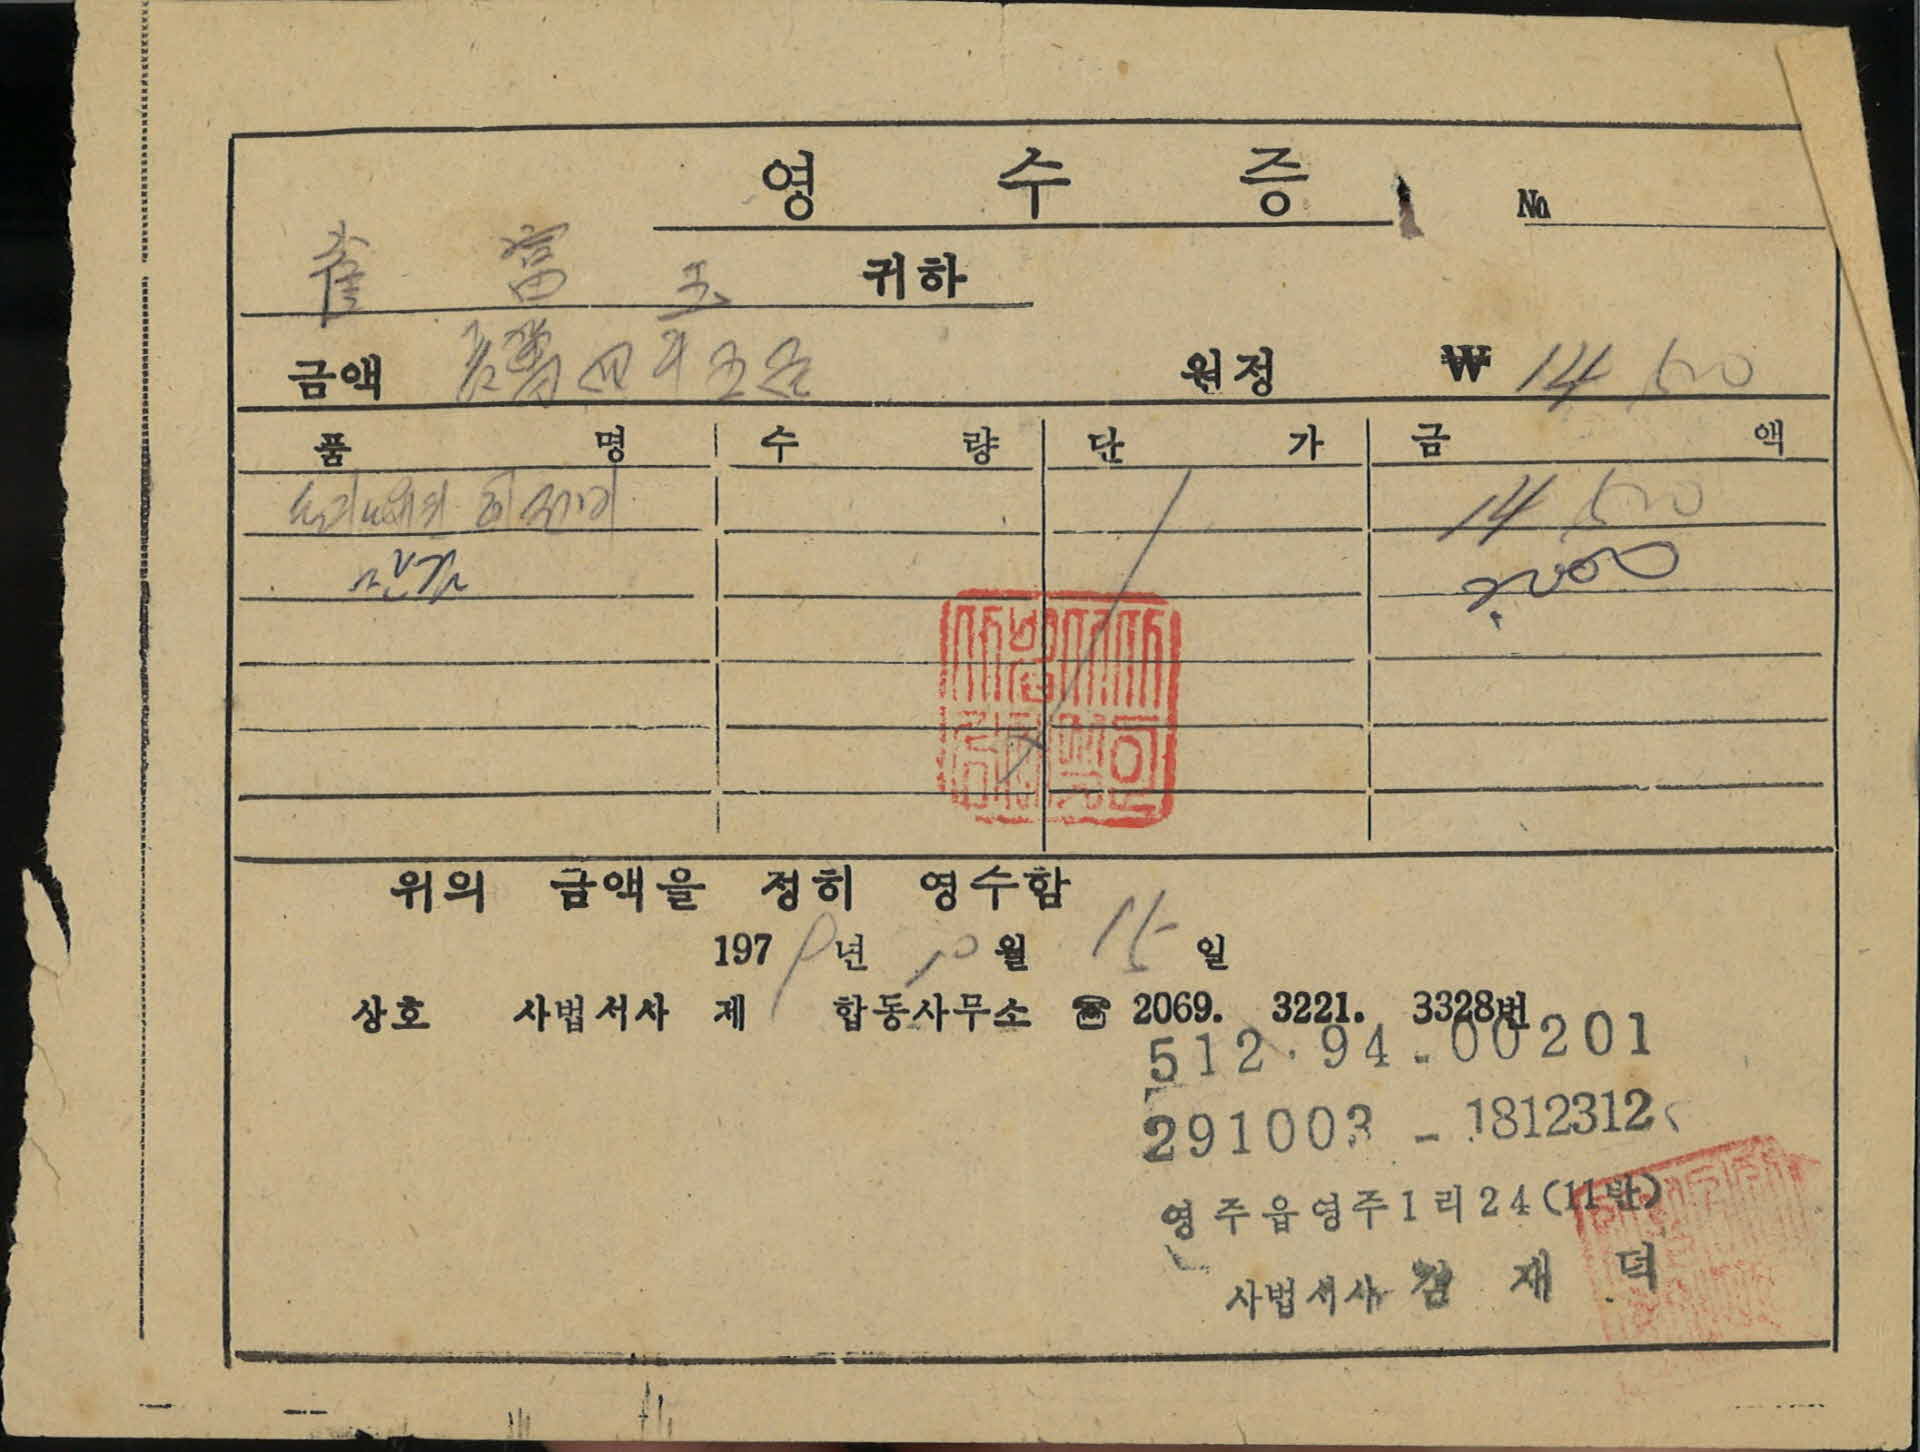 영 수 증 No
崔 富 玉 귀하
금액 원정 ₩ 14,500
품 명 수 량 단 가 금 액
14,500
2000
위의 금액을 정히 영수함
1979년 10월 15일
상호 사법서사 제 합동사무소 ☎ 2069. 3221. 3328번
512-94-00201
291003-1812312
영주읍영주1리24(11반)
사법서사 김 재 덕